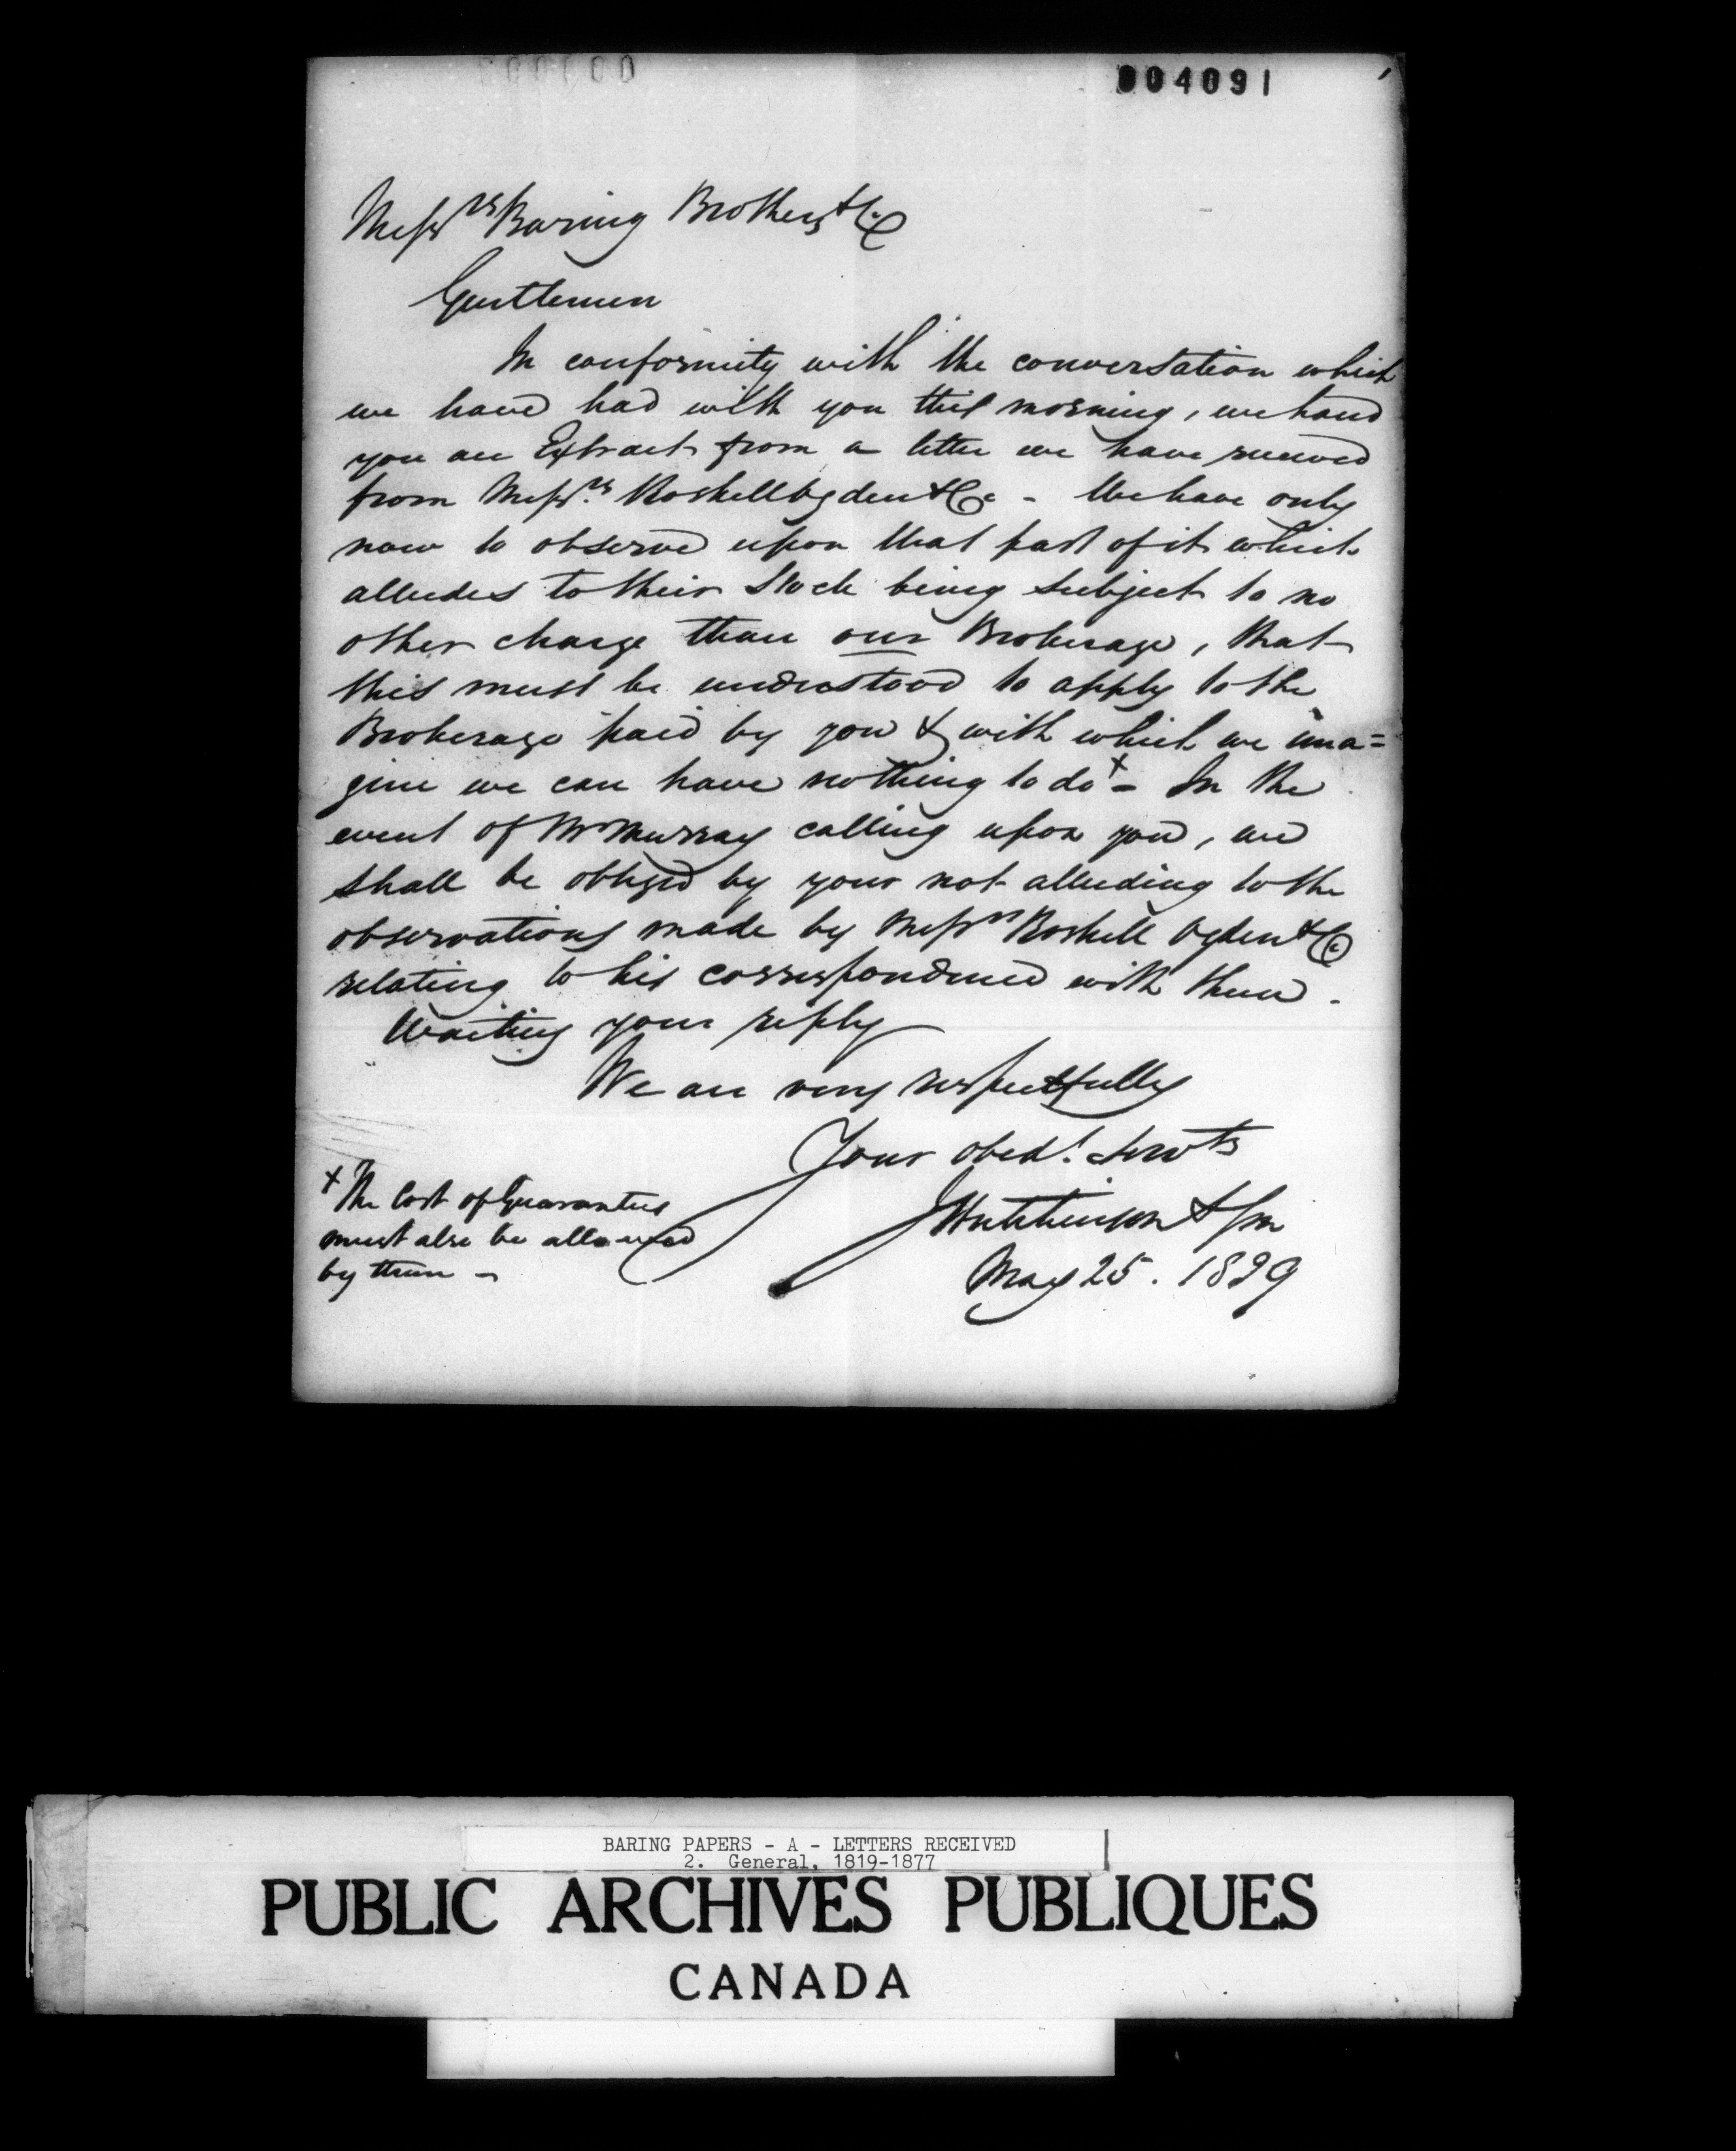 004091
Messrs Baring Brothers & Co
Gentlemen
In conformity with the conversation which
we have had with you this morning, we hand
you an Extract from a letter we have received
from Messrs. Roskell Ogden & Co - We have only
now to observe upon that part of it which
alludes to their Stock being subject to no
other charge than our Brokerage, that
this must be understood to apply to the
Brokerage paid by you & with which we ima=
gine we can have nothing to do + - In the
event of Mr Murray calling upon you, we
shall be obliged by your not alluding to the
observations made by Messrs Roskell Ogden & Co
relating to his correspondence with them.
Waiting your reply
We are very respectfully
Your obedt. servts
J Hutchinson & Son
May 25. 1829
+ The Cost of Guarantee
must also be allowed
by them -
BARING PAPERS - A - LETTERS RECEIVED
2. General, 1819-1877
PUBLIC ARCHIVES PUBLIQUES
CANADA